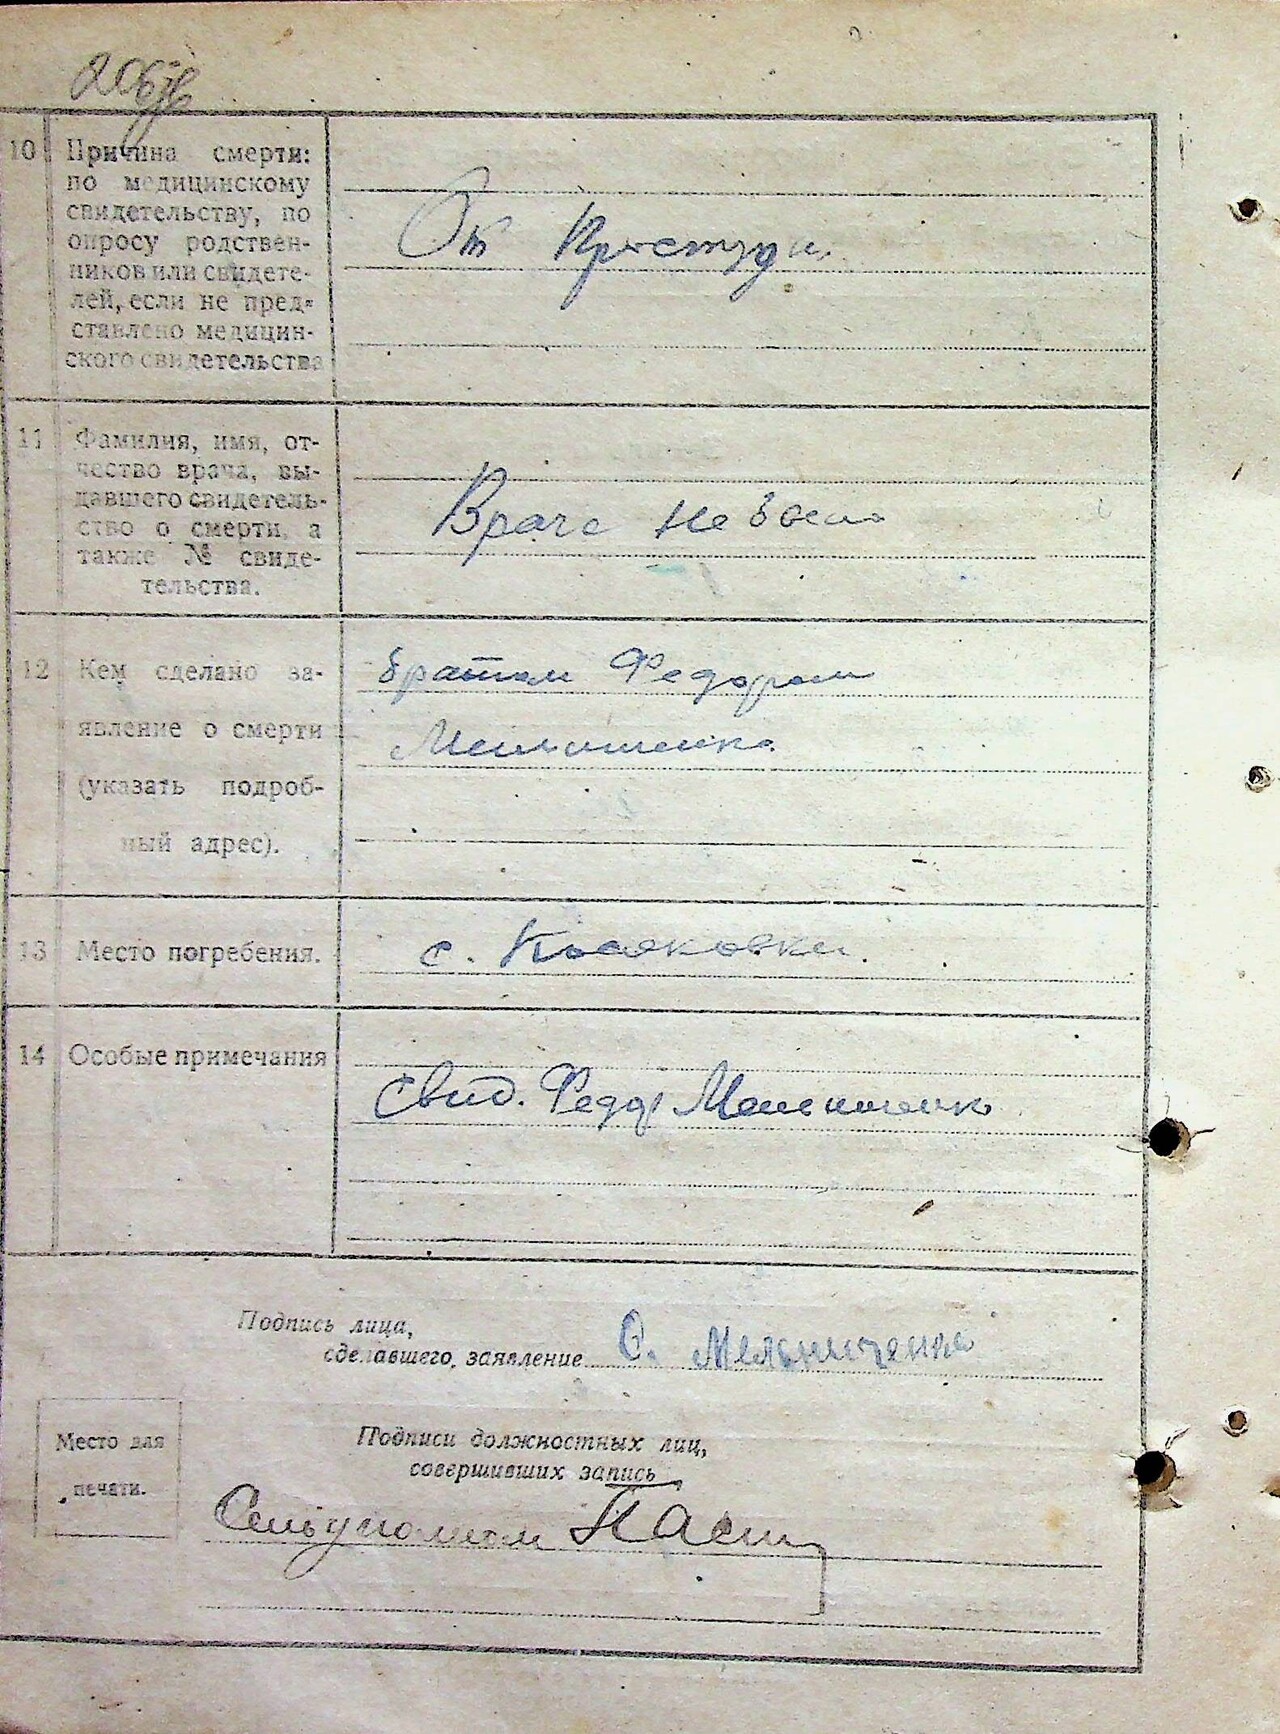 206
10 Причина смерти:
по медицинскому
свидетельству, по
опросу родствен-
ников или свидете-
лей, если не пред-
ставлено медицин-
ского свидетельства
От Простуди
11 Фамилия, имя, от-
чество врача, вы-
давшего свидетель-
ство о смерти, а
также № свиде-
тельства.
Врача не было
12 Кем сделано за-
явление о смерти
(указать подроб-
ный адрес).
братом Федором
13 Место погребения.
с.
14 Особые примечания
Свид. Федор
Подпись лица,
сделавшего, заявление Мельниченко
Место для
печати.
Подписи должностных лиц,
совершивших запись